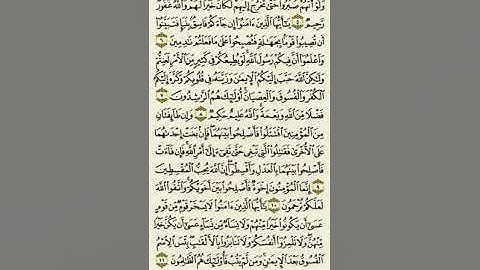 وَلَوْ أَنَّهُمْ صَبَرُوا۟ حَتَّىٰ تَخْرُجَ إِلَيْهِمْ لَكَانَ خَيْرًا لَّهُمْ وَٱللَّهُ غَفُورٌ
رَّحِيمٌ ٥ يَـٰٓأَيُّهَا ٱلَّذِينَ ءَامَنُوٓا۟ إِن جَآءَكُمْ فَاسِقٌۢ بِنَبَإٍ فَتَبَيَّنُوٓا۟
أَن تُصِيبُوا۟ قَوْمًۢا بِجَهَـٰلَةٍ فَتُصْبِحُوا۟ عَلَىٰ مَا فَعَلْتُمْ نَـٰدِمِينَ ٦
وَٱعْلَمُوٓا۟ أَنَّ فِيكُمْ رَسُولَ ٱللَّهِ لَوْ يُطِيعُكُمْ فِى كَثِيرٍ مِّنَ ٱلْأَمْرِ لَعَنِتُّمْ
وَلَـٰكِنَّ ٱللَّهَ حَبَّبَ إِلَيْكُمُ ٱلْإِيمَـٰنَ وَزَيَّنَهُۥ فِى قُلُوبِكُمْ وَكَرَّهَ إِلَيْكُمُ
ٱلْكُفْرَ وَٱلْفُسُوقَ وَٱلْعِصْيَانَ أُو۟لَـٰٓئِكَ هُمُ ٱلرَّٰشِدُونَ ٧
فَضْلًا مِّنَ ٱللَّهِ وَنِعْمَةً وَٱللَّهُ عَلِيمٌ حَكِيمٌ ٨ وَإِن طَآئِفَتَانِ
مِنَ ٱلْمُؤْمِنِينَ ٱقْتَتَلُوا۟ فَأَصْلِحُوا۟ بَيْنَهُمَا فَإِنۢ بَغَتْ إِحْدَىٰهُمَا
عَلَى ٱلْأُخْرَىٰ فَقَـٰتِلُوا۟ ٱلَّتِى تَبْغِى حَتَّىٰ تَفِىٓءَ إِلَىٰٓ أَمْرِ ٱللَّهِ فَإِن فَآءَتْ
فَأَصْلِحُوا۟ بَيْنَهُمَا بِٱلْعَدْلِ وَأَقْسِطُوٓا۟ إِنَّ ٱللَّهَ يُحِبُّ ٱلْمُقْسِطِينَ
٩ إِنَّمَا ٱلْمُؤْمِنُونَ إِخْوَةٌ فَأَصْلِحُوا۟ بَيْنَ أَخَوَيْكُمْ وَٱتَّقُوا۟ ٱللَّهَ
لَعَلَّكُمْ تُرْحَمُونَ ١٠ يَـٰٓأَيُّهَا ٱلَّذِينَ ءَامَنُوا۟ لَا يَسْخَرْ قَوْمٌ مِّن قَوْمٍ
عَسَىٰٓ أَن يَكُونُوا۟ خَيْرًا مِّنْهُمْ وَلَا نِسَآءٌ مِّن نِّسَآءٍ عَسَىٰٓ أَن يَكُنَّ خَيْرًا
مِّنْهُنَّ وَلَا تَلْمِزُوٓا۟ أَنفُسَكُمْ وَلَا تَنَابَزُوا۟ بِٱلْأَلْقَـٰبِ بِئْسَ ٱلِٱسْمُ
ٱلْفُسُوقُ بَعْدَ ٱلْإِيمَـٰنِ وَمَن لَّمْ يَتُبْ فَأُو۟لَـٰٓئِكَ هُمُ ٱلظَّـٰلِمُونَ ١١